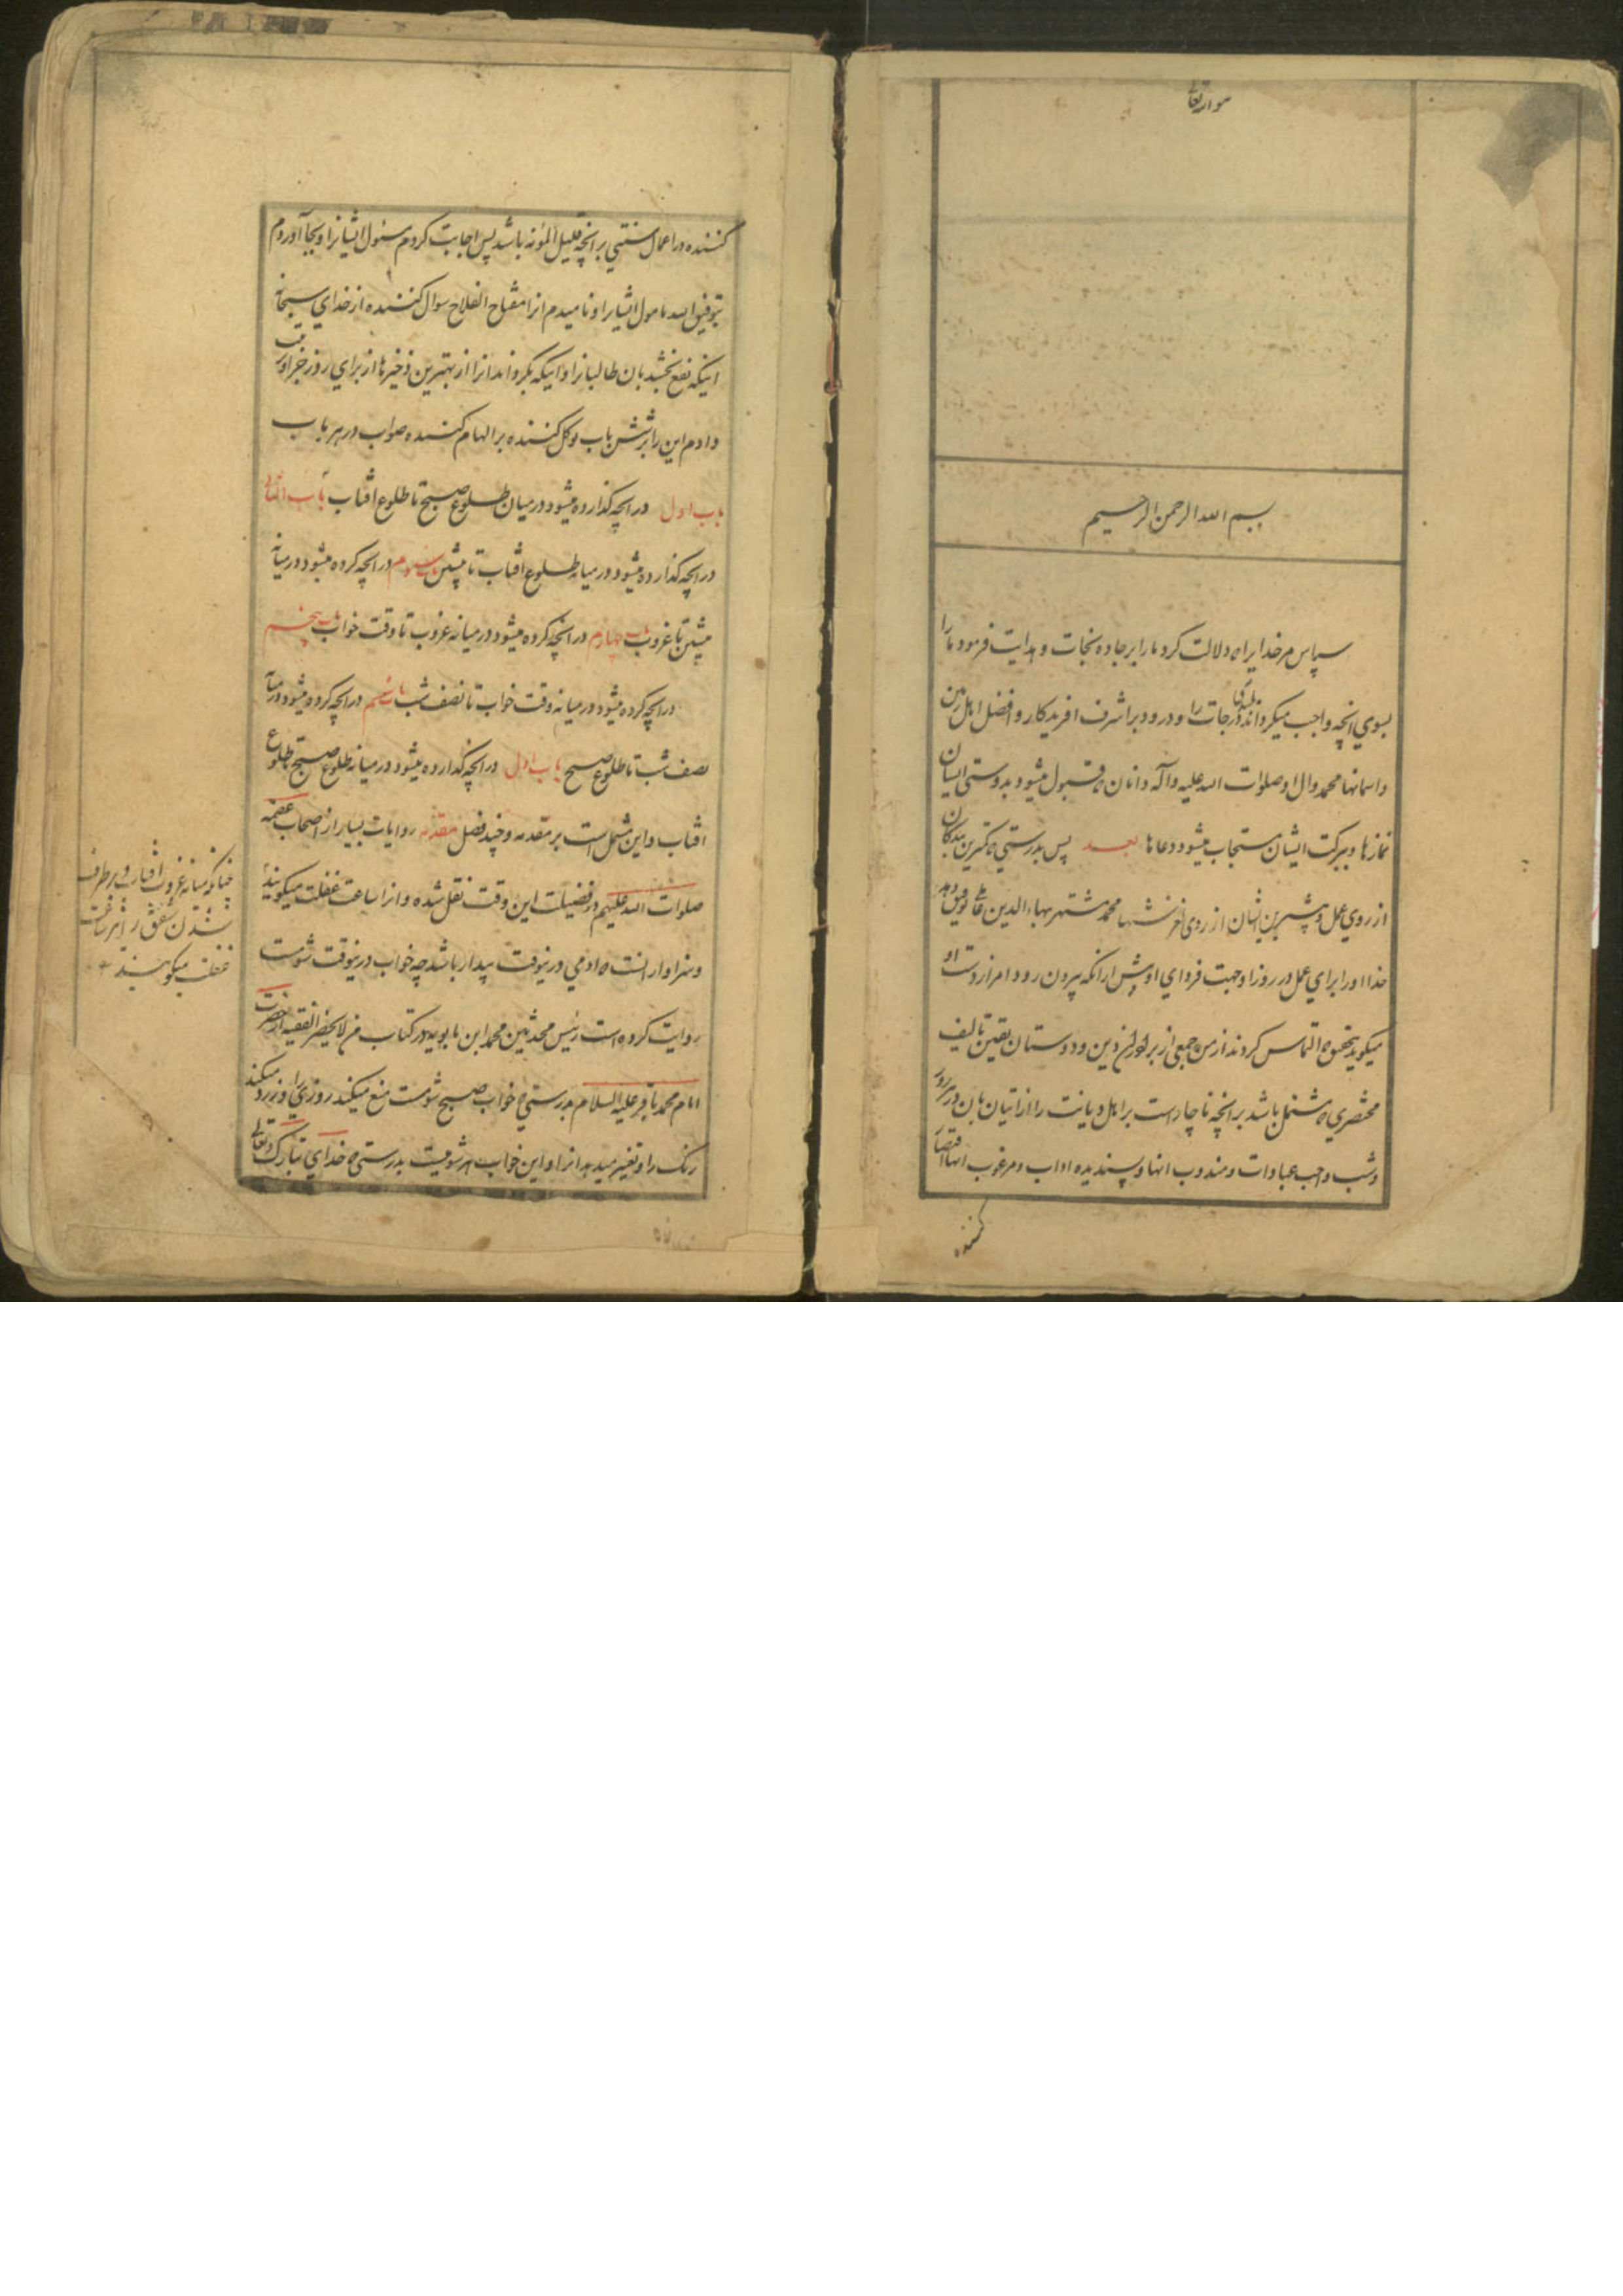 هو الله تعالی
بسم الله الرحمن الرحیم
سپاس مر خدایرا که دلالت کرد ما را بر جاده نجات و هدایت فرمود ما را
بسوی آنچه واجب میکرداند بلندی درجات را و درود بر اشرف افریدکار و افضل اهل زمین
و اسمانها محمد و ال او صلوات الله علیه و آله و انان که قبول میشود بدوستی ایشان
نمازها و ببرکت ایشان مستجاب میشود دعاها بعد پس بدرستی که کمترین بندکان
از روی عمل و بیشترین ایشان از روی لغزشها محمد مشتهر ببهاء الدین عاملی توفیق دهد
خدا او را برای عمل در روز او جهت فردای او پیش از آنکه بیرون رود امر از دست او
میکوید بتحقیق که التماس کردند از من جمعی از برادران دین و دوستان یقین تالیف
مختصری که مشتمل باشد بر آنچه ناچار است بر اهل دیانت را از اتیان بان در هر روز
و شب و اجب عبادات و مندوب انها و پسندیده اداب و مرغوب انها اقتصار
کننده
کننده در اعمال سنتی بر آنچه قلیل المؤنه باشد پس اجابت کردم مسئول ایشانرا و بجا آوردم
بتوفیق الله مامول ایشانرا و نامیدم انرا مفتاح الفلاح سوال کننده از خدای سبحانه
اینکه نفع بخشد بان طالبانرا و اینکه بکرداند انرا از بهترین ذخیرها از برای روز جزا و ترتیب
دادم این را بر شش باب توکل کننده بر الهام کننده صواب در هر باب
باب اول در آنچه کذارده میشود در میان طلوع صبح تا طلوع افتاب باب الثانی
در آنچه کذارده میشود در میانه طلوع افتاب تا پیشین باب سوم در آنچه کرده میشود در میانه
پیشین تا غروب باب چهارم در آنچه کرده میشود در میانه غروب تا وقت خواب باب پنجم
در آنچه کرده میشود در میانه وقت خواب تا نصف شب باب ششم در آنچه کرده میشود در میانه
نصف شب تا طلوع صبح باب اول در آنچه کذارده میشود در میانه طلوع صبح تا طلوع
افتاب و این مشتمل است بر مقدمه و چند فصل مقدمه روایات بسیار از اصحاب عصمه
صلوات الله علیهم در فضیلت این وقت نقل شده و انرا ساعت غفلت میکویند
و سزاوار انست که ادمی در ینوقت بیدار باشد چه خواب در ینوقت شومست
روایت کرده است رئیس محدثین محمد ابن بابویه در کتاب من لایحضر الفقیه از حضرت
امام محمد باقر علیه السلام بدرستی که خواب صبح شومست منع میکند روزی را و زرد میکند
رنک را و تغییر میدهد انرا و این خواب هر شومیست بدرستی که خدای تبارک و تعالی
چنانکه میانه غروب افتاب و برطرف
شدن شفق را نیز ساعت
غفلت میکویند